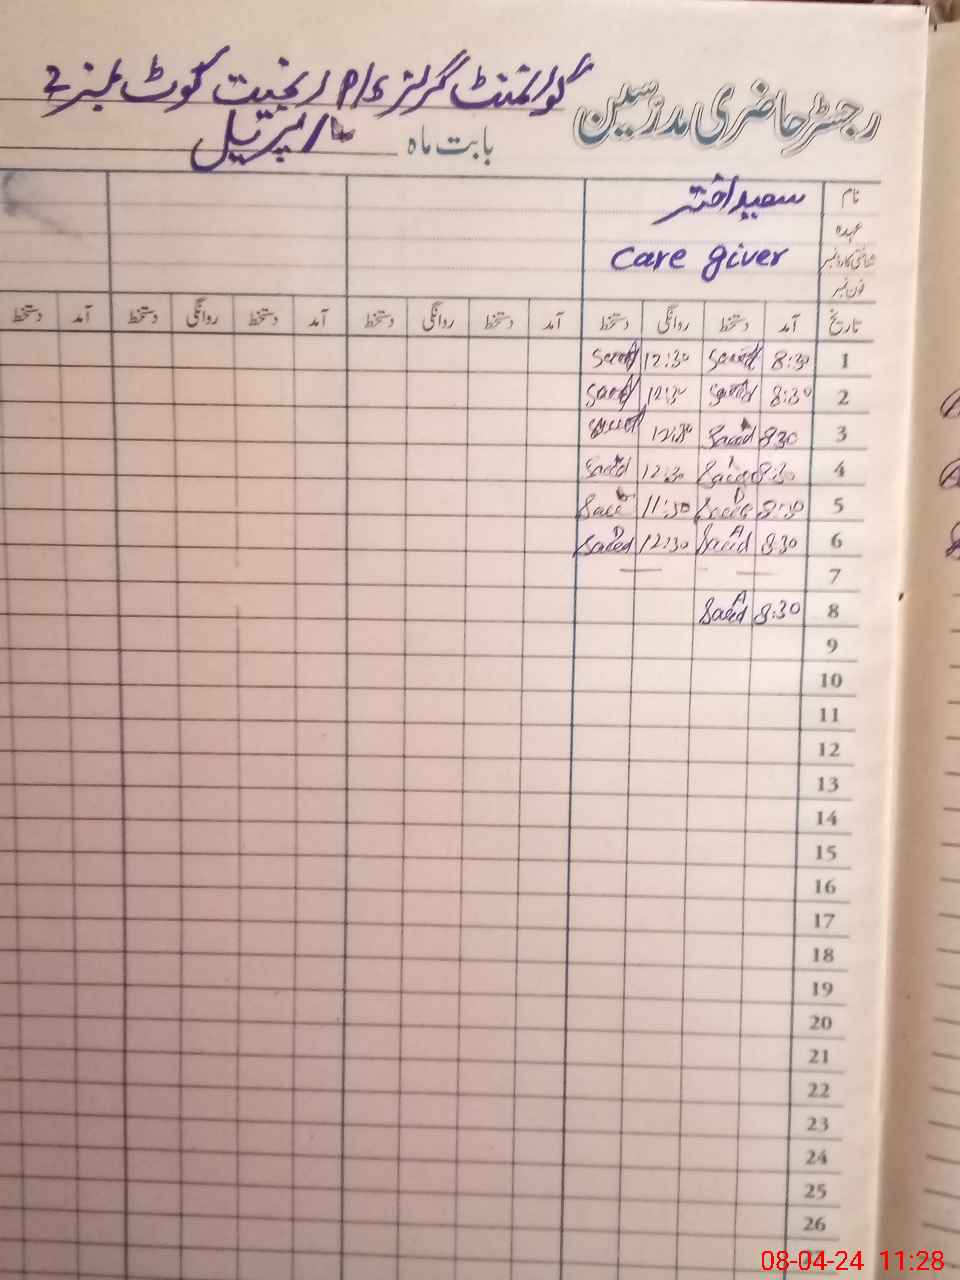 رجسٹر حاضری مدرسین گورنمنٹ گرلز P/S رنجیت کوٹ نمبر 2
بابت ماہ اپریل
نام سعید اختر
عہدہ
شناختی کارڈ نمبر Care giver
فون نمبر
تاریخ آمد دستخط روانگی دستخط آمد دستخط روانگی دستخط آمد دستخط روانگی دستخط آمد دستخط
1 8:30 Saeed 12:30 Saeed
2 8:30 Saeed 12:30 Saeed
3 830 Saeed 12:30 Saeed
4 8:30 Saeed 12:30 Saeed
5 8:30 Saeed 11:30 Saeed
6 8:30 Saeed 12:30 Saeed
7 — —
8 8:30 Saeed
9
10
11
12
13
14
15
16
17
18
19
20
21
22
23
24
25
26
08-04-24 11:28